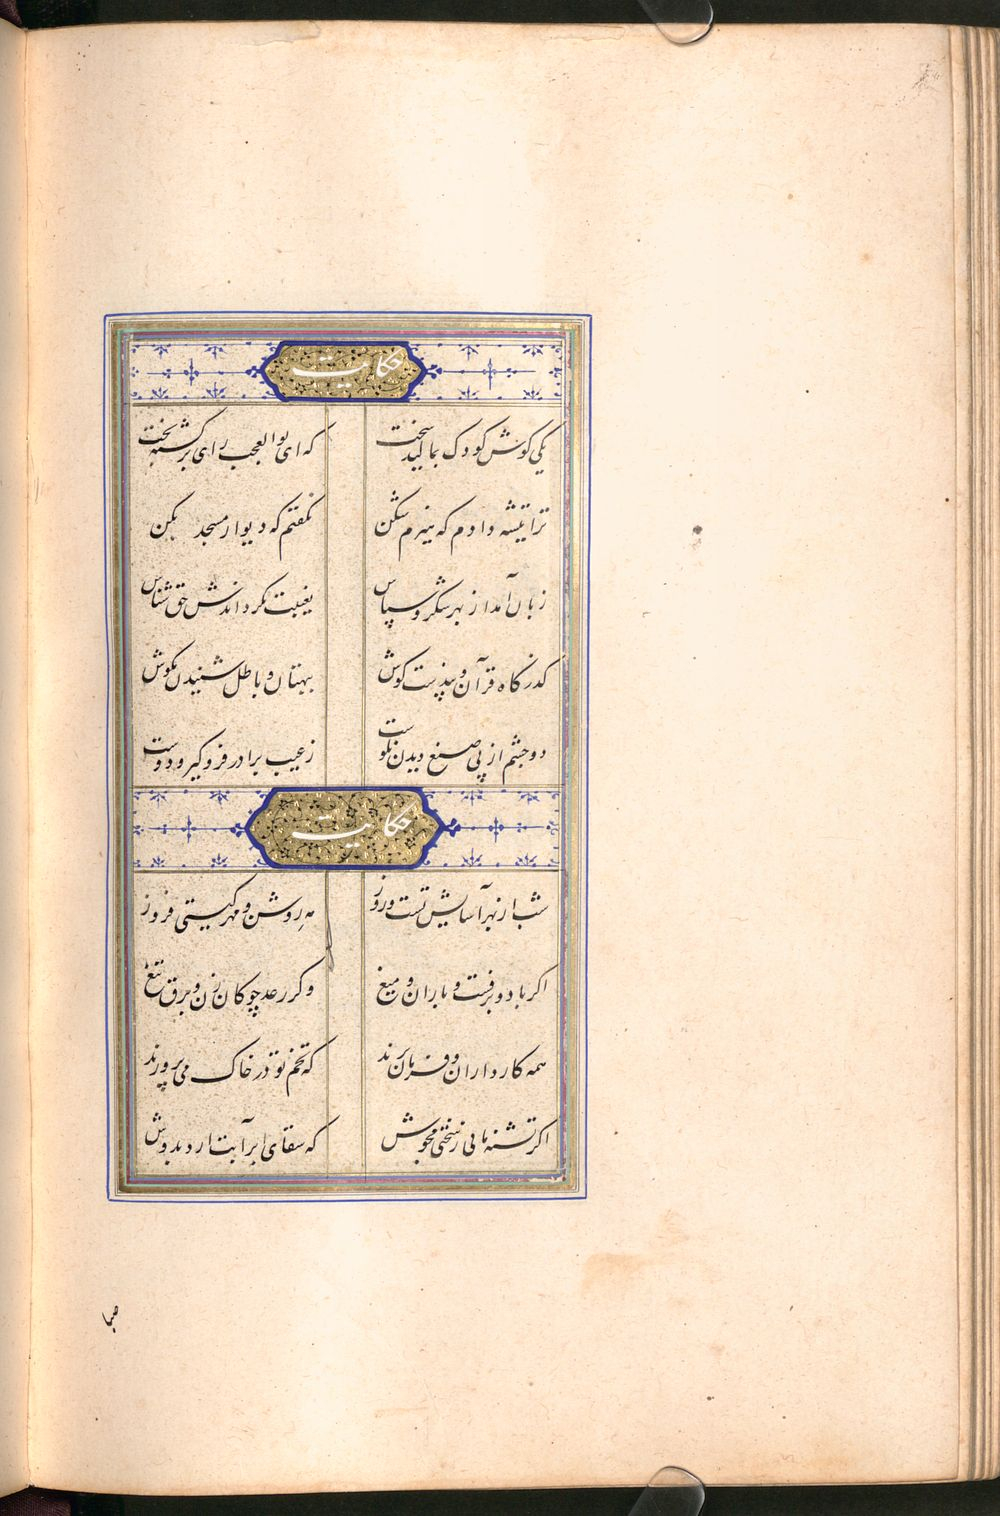 حکایت
یکی کوش کودک بمالید سخت که ای بوالعجب رای برگشته بخت
ترا تیشه دادم که هیزم شکن نکفتم که دیوار مسجد بکن
زبان آمد از بهر شکر و سپاس بغیبت نکرداندش حق شناس
کذرکاه قرآن و پندست کوش ببهتان و باطل شنیدن مکوش
دو چشم از پی صنع دیدن نکوست ز عیب برادر فرو کیر و دوست
حکایت
شب از بهر آسایش تست و روز مه روشن و مهر کیتی فروز
اکر باد و برفست و باران و میغ وکر رعد چوکان زن و برق تیغ
همه کارداران و فرمان برند که تخم تو در خاک می پرورند
اکر تشنه مانی ز سختی مجوش که سقای ابر آبت ارد بدوش
صبا